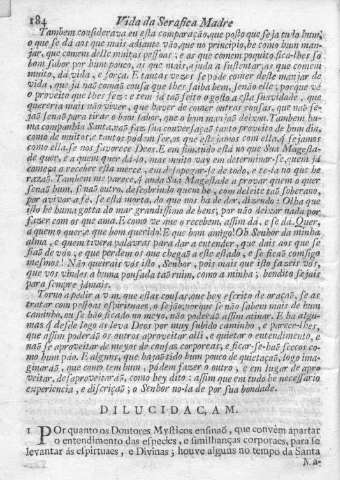 184 Vida da Serafica Madre
Tambem considerava eu està comparação, que posto que seja tudo hum,
o que se dá aos que mais adiante vão, que no principio, he como hum man-
jar, que comem delle muitas pessoas: e as que comem pouquito, fica-lhes só
bom sabor por hum pouco, as que mais, ajuda a sustentar, as que comem
muito, dá vida, e força. E tantas vezes se pode comer deste manjar de
vida, que já naõ comaõ cousa que lhes saiba bem, senaõ elle; porque vé
o proveito que lhes fez: e tem já taõ feito o gosto a esta suavidade, que
quereria mais naõ viver, que haver de comer outras cousas, que naõ se-
jaõ senaõ para tirar o bom sabor, que o bom manjar deixou. Tambem hu-
ma companhia Santa, naõ faz sua conversaçaõ tanto proveito de hum dia,
como de muitos, e tantos podem ser, os que estejamos com ella, q sejamos
como ella, se nos favorece Deos. E em fim tudo está no que Sua Magesta-
de quer, e a quem quer dá-lo, mas muito vay em determinar-se, quem já
começa a receber esta mercè, em desapegar-se de todo, e te-la no que he
razaõ. Tambem me parece, q anda Sua Magestade a provar quem o quer,
senaõ hum, senaõ outro, descobrindo quem he, com deleite taõ soberano,
por avivar a fé, se está morta, do que nos ha de dar, dizendo: Olha que
isto he huma gotta do mar grandissimo de bens, por não deixar nada por
fazer com os que ama. E como vè que o recebem, assim dá, e se dá. Quer,
a quem o quer: e que bom querido! E que bom amigo! Oh Senhor da minha
alma, e quem tivera palavras para dar a entender, que dais aos que se
fiaõ de vós, e que perdem os que chegaõ a este estado, e se ficaõ comsigo
mesmos! Não queirais vós isto, Senhor, pois mais que isto fazeis vós,
que vos vindes a huma pousada taõ ruim, como a minha; bendito sejais
para sempre jámais.
Torno a pedir a v. m. que estas cousas que hey escrito de oração, se as
tratar com pessoas espirituaes, o sejaõ, porque se naõ sabem mais de hum
caminho, ou se haõ ficado no meyo, naõ poderáõ assim atinar. E ha algu-
mas q desde logo as leva Deos por muy subido caminho, e parece-lhes,
que assim poderáõ os outros aproveitar alli, e quietar o entendimento, e
naõ se aproveitar de meyos de cousas corporeas, e ficar-se-haõ seccos co-
mo hum páo. E alguns, que hajaõ tido hum pouco de quietaçaõ, logo ima-
ginaráõ, que como tem hum, pódem fazer o outro, e em lugar de apro-
veitar, desaproveitaráõ, como hey dito: assim que em tudo he necessario
experiencia, e discriçaõ; o Senhor no-la de por sua bondade.
DILUCIDAC,AM.
1 POr quanto os Doutores Mysticos ensinaõ, que convém apartar
o entendimento das especies, e similhanças corporaes, para se
levantar ás espirituaes, e Divinas; houve alguns no tempo da Santa